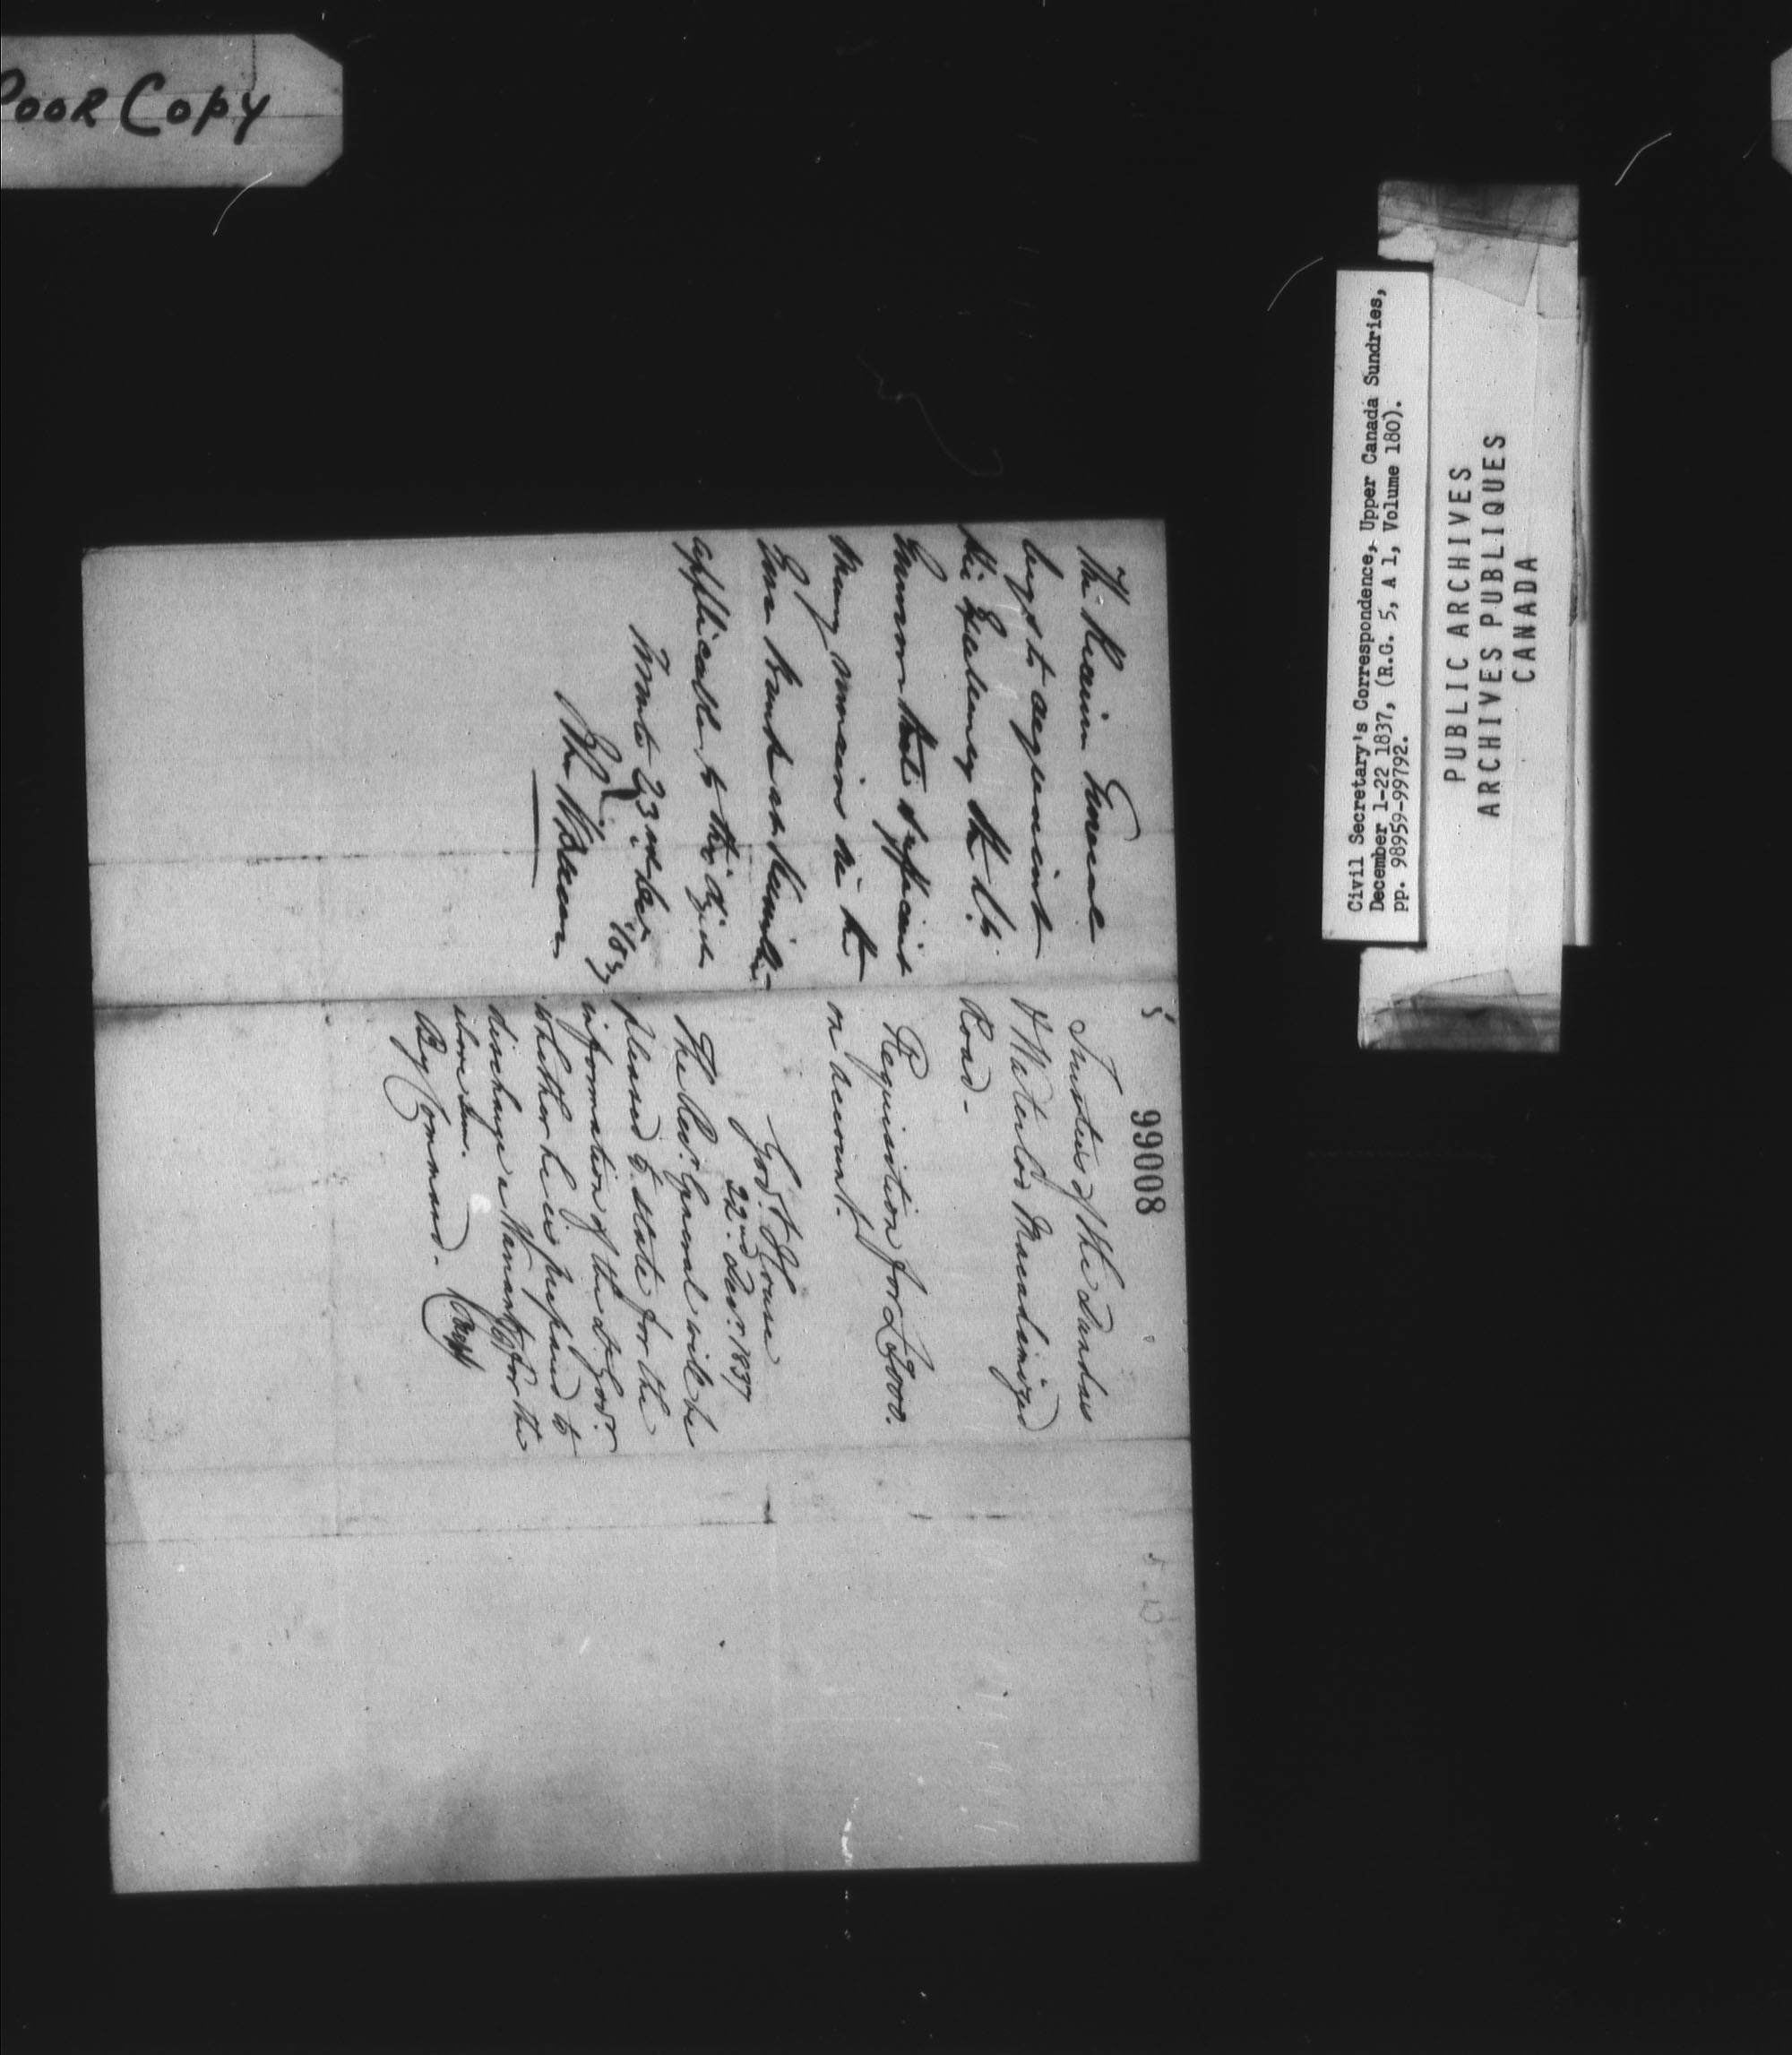 Poor Copy
Civil Secretary's Correspondence, Upper Canada Sundries,
December 1-22 1837, (R.G. 5, A 1, Volume 180).
pp. 98959-99792.
PUBLIC ARCHIVES
ARCHIVES PUBLIQUES
CANADA
99008
The Receiver General
begs to acquaint
His Excellency the Lt.
Governor that sufficient
money remains in the
Gore Bank at Hamilton
applicable to this object
Toronto 23rd Decr
1837
John H Dunn
5
Trustees of the Dundas
& Waterloo Macadamized
Road -
Requisition for £2000.
on account.
Govt. House
22nd. Decr. 1837
The Recr. General will be
pleased to state for the
information of the Lt. Govr.
whether he is prepared to
discharge a Warrant for the
above sum.
By Command -